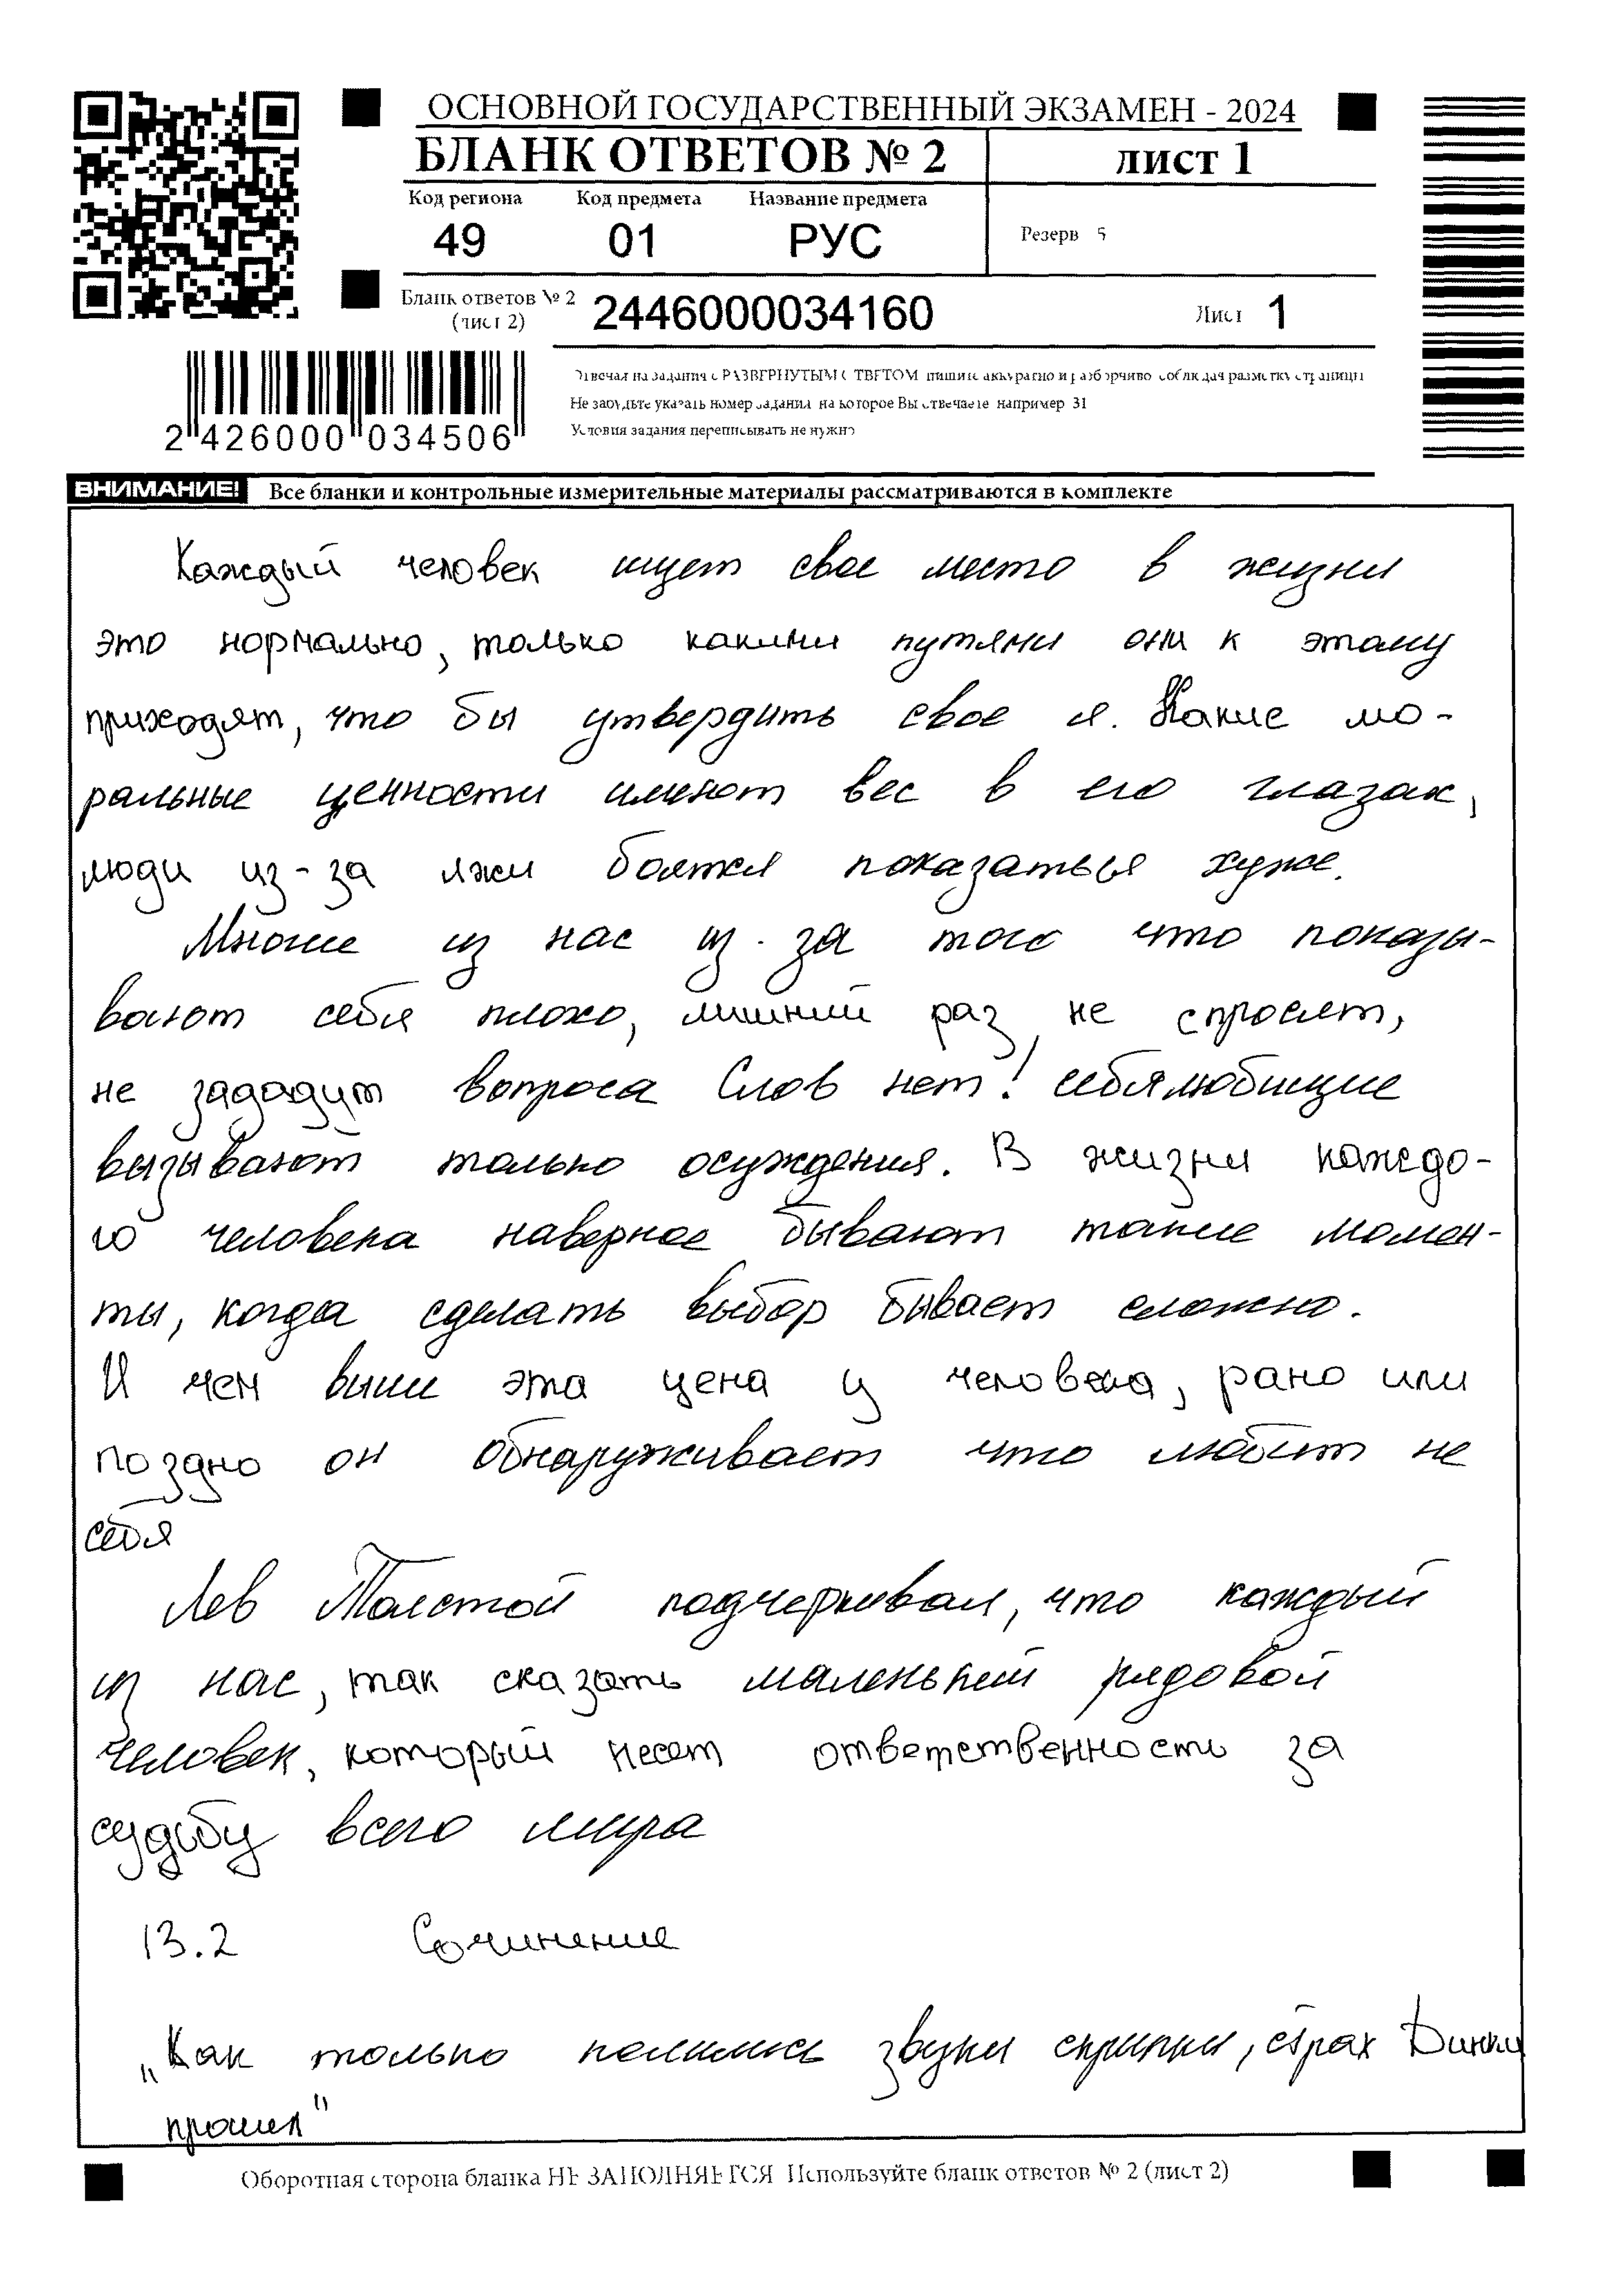 ОСНОВНОЙ ГОСУДАРСТВЕННЫЙ ЭКЗАМЕН - 2024
БЛАНК ОТВЕТОВ № 2 лист 1
Код региона Код предмета Название предмета
49 01 РУС
Резерв 5
Бланк ответов № 2 (лист 2) 2446000034160 Лист 1
Отвечая на задания с РАЗВЕРНУТЫМ ОТВЕТОМ пишите аккуратно и разборчиво соблюдая разметку страницы
Не забудьте указать номер задания на которое Вы отвечаете например 31
Условия задания переписывать не нужно
2 426000 034506
ВНИМАНИЕ! Все бланки и контрольные измерительные материалы рассматриваются в комплекте
Каждый человек ищет свое место в жизни
это нормально, только какими путями они к этаму
приходят, что бы утвердить свое я. Какие мо-
ральные ценности имеют вес в его глазах,
люди из-за лжи боятся показаться хуже.
Многие из нас из-за того что показы-
вают себя плохо, лишний раз не спросят,
не зададут вопроса Слов нет! себялюбищие
вызывают только осуждения. В жизни каждо-
го человека наверное бывают такие момен-
ты, когда сделать выбор бывает сложно.
И чем выши эта цена у человека, рано или
поздно он обнаруживает что любит не
себя
Лев Толстой подчеркивал, что каждый
из нас, так сказать маленький рядовой
человек, который несет ответственность за
судьбу всего мира
13.2 Сочинение
„Как только полились звуки скрипки, страх Динки
прошел"
Оборотная сторона бланка НЕ ЗАПОЛНЯЕТСЯ Используйте бланк ответов № 2 (лист 2)